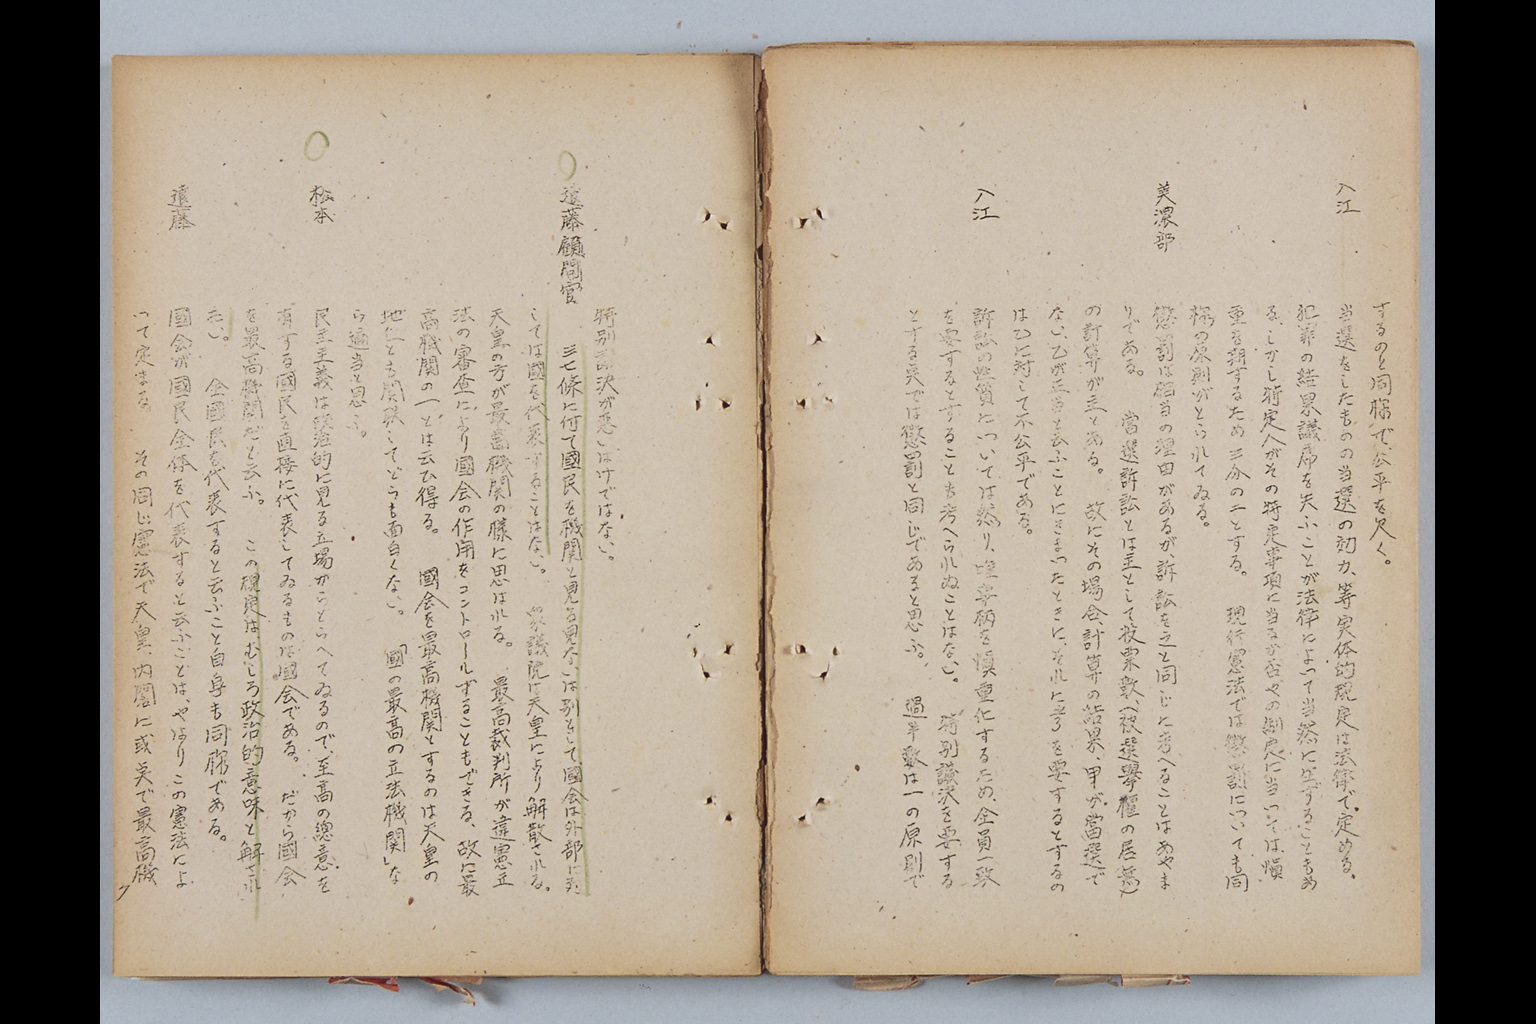 するのと同様で、公平を欠く。
入江
当選をしたものの当選の効力、等実体的規定は法律で定める。
犯罪の結果議席を失ふことが法律によって当然に生ずることもあ
る、しかし特定人がその特定事項に当るか否やの測定に当っては慎
重を期するため三分の二とする。 現行憲法では懲罰についても同
様の原則がとられてゐる。
美濃部
懲罰は相当の理由があるが、訴訟を之と同じに考へることはあやま
りである。 当選訴訟とは主として投票数、被選挙権の有無
の計算が主となる。 故にその場合計算の結果、甲が当選で
ない、乙が正当と云ふことにきまったときに、それに⅔を要するとするの
は乙に対して不公平である。
入江
訴訟の性質については然り、唯事柄を慎重化するため、全員一致
を要するとすることも考へられぬことはない。 特別議決を要する
とする点では懲罰と同じであると思ふ。 過半数は一の原則で
特別議決が悪いわけではない。
遠藤顧問官
三七條に付て國民を機関と見る見ないは別として國会は外部に対
しては國を代表することはない。 衆議院は天皇により解散される。
天皇の方が最高機関の様に思はれる。 最高裁判所が違憲立
法の審査により國会の作用をコントロールすることもできる、故に最
高機関の一とは云ひ得る。 國会を最高機関とするのは天皇の
地位とも関聯してどうも面白くない。 「國の最高の立法機関」な
ら適当と思ふ。
松本
民主主義は政治的に見る立場からとらへてゐるので、至高の總意を
有する國民を直接に代表してゐるものは國会である。 だから國会
を最高機関だと云ふ。 この規定はむしろ政治的意味と解され
たい。 全國民を代表すると云ふこと自身も同様である。
遠藤
國会が國民全体を代表すると云ふことは、やはりこの憲法によ
って定まる。 その同じ憲法で天皇、内閣に或点で最高機